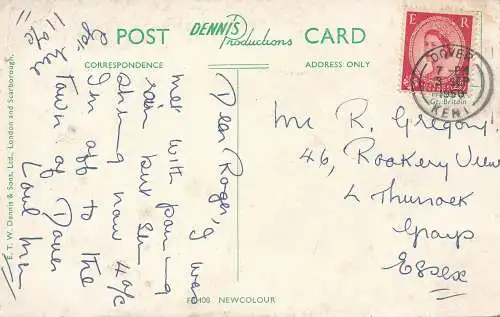 POST
DENNIS
Productions
CARD
CORRESPONDENCE
ADDRESS ONLY
E R
DOVER
7 PM
3 SEP
1956
KENT
Gt. Britain
Dear Roger, I was
met with pouring
rain but sun
shining now 4 o/c
I'm off to the
Town of Dover
Love
Mr R. Gregory
46, Rookery View
L Thurrock
Grays
Essex
E. T. W. Dennis & Sons, Ltd., London and Scarborough.
NEWCOLOUR